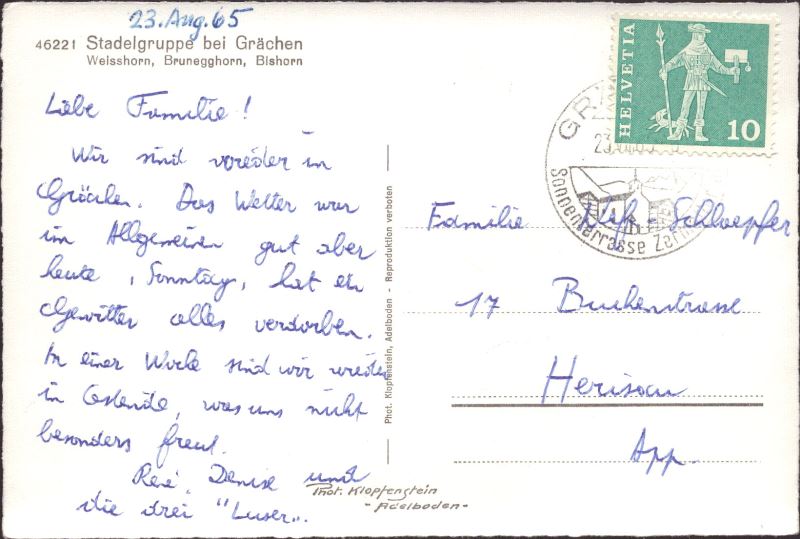 23. Aug. 65
46221 Stadelgruppe bei Grächen
Weisshorn, Brunegghorn, Bishorn
Liebe Familie!
Wir sind wieder in
Grächen. Das Wetter war
im Allgemeinen gut aber
heute, Sonntag, hat ein
Gewitter alles verdorben.
In einer Woche sind wir wieder
in Ostende, was uns nicht
besonders freut.
René, Denise und
die drei "Luser".
Phot. Klopfenstein, Adelboden - Reproduktion verboten
Phot. Klopfenstein
- Adelboden -
HELVETIA
10
GRÄ
23.
Sonnenterrasse Zer
Familie Nef-Schloepfer
17 Buchenstrasse
Herisau
App.